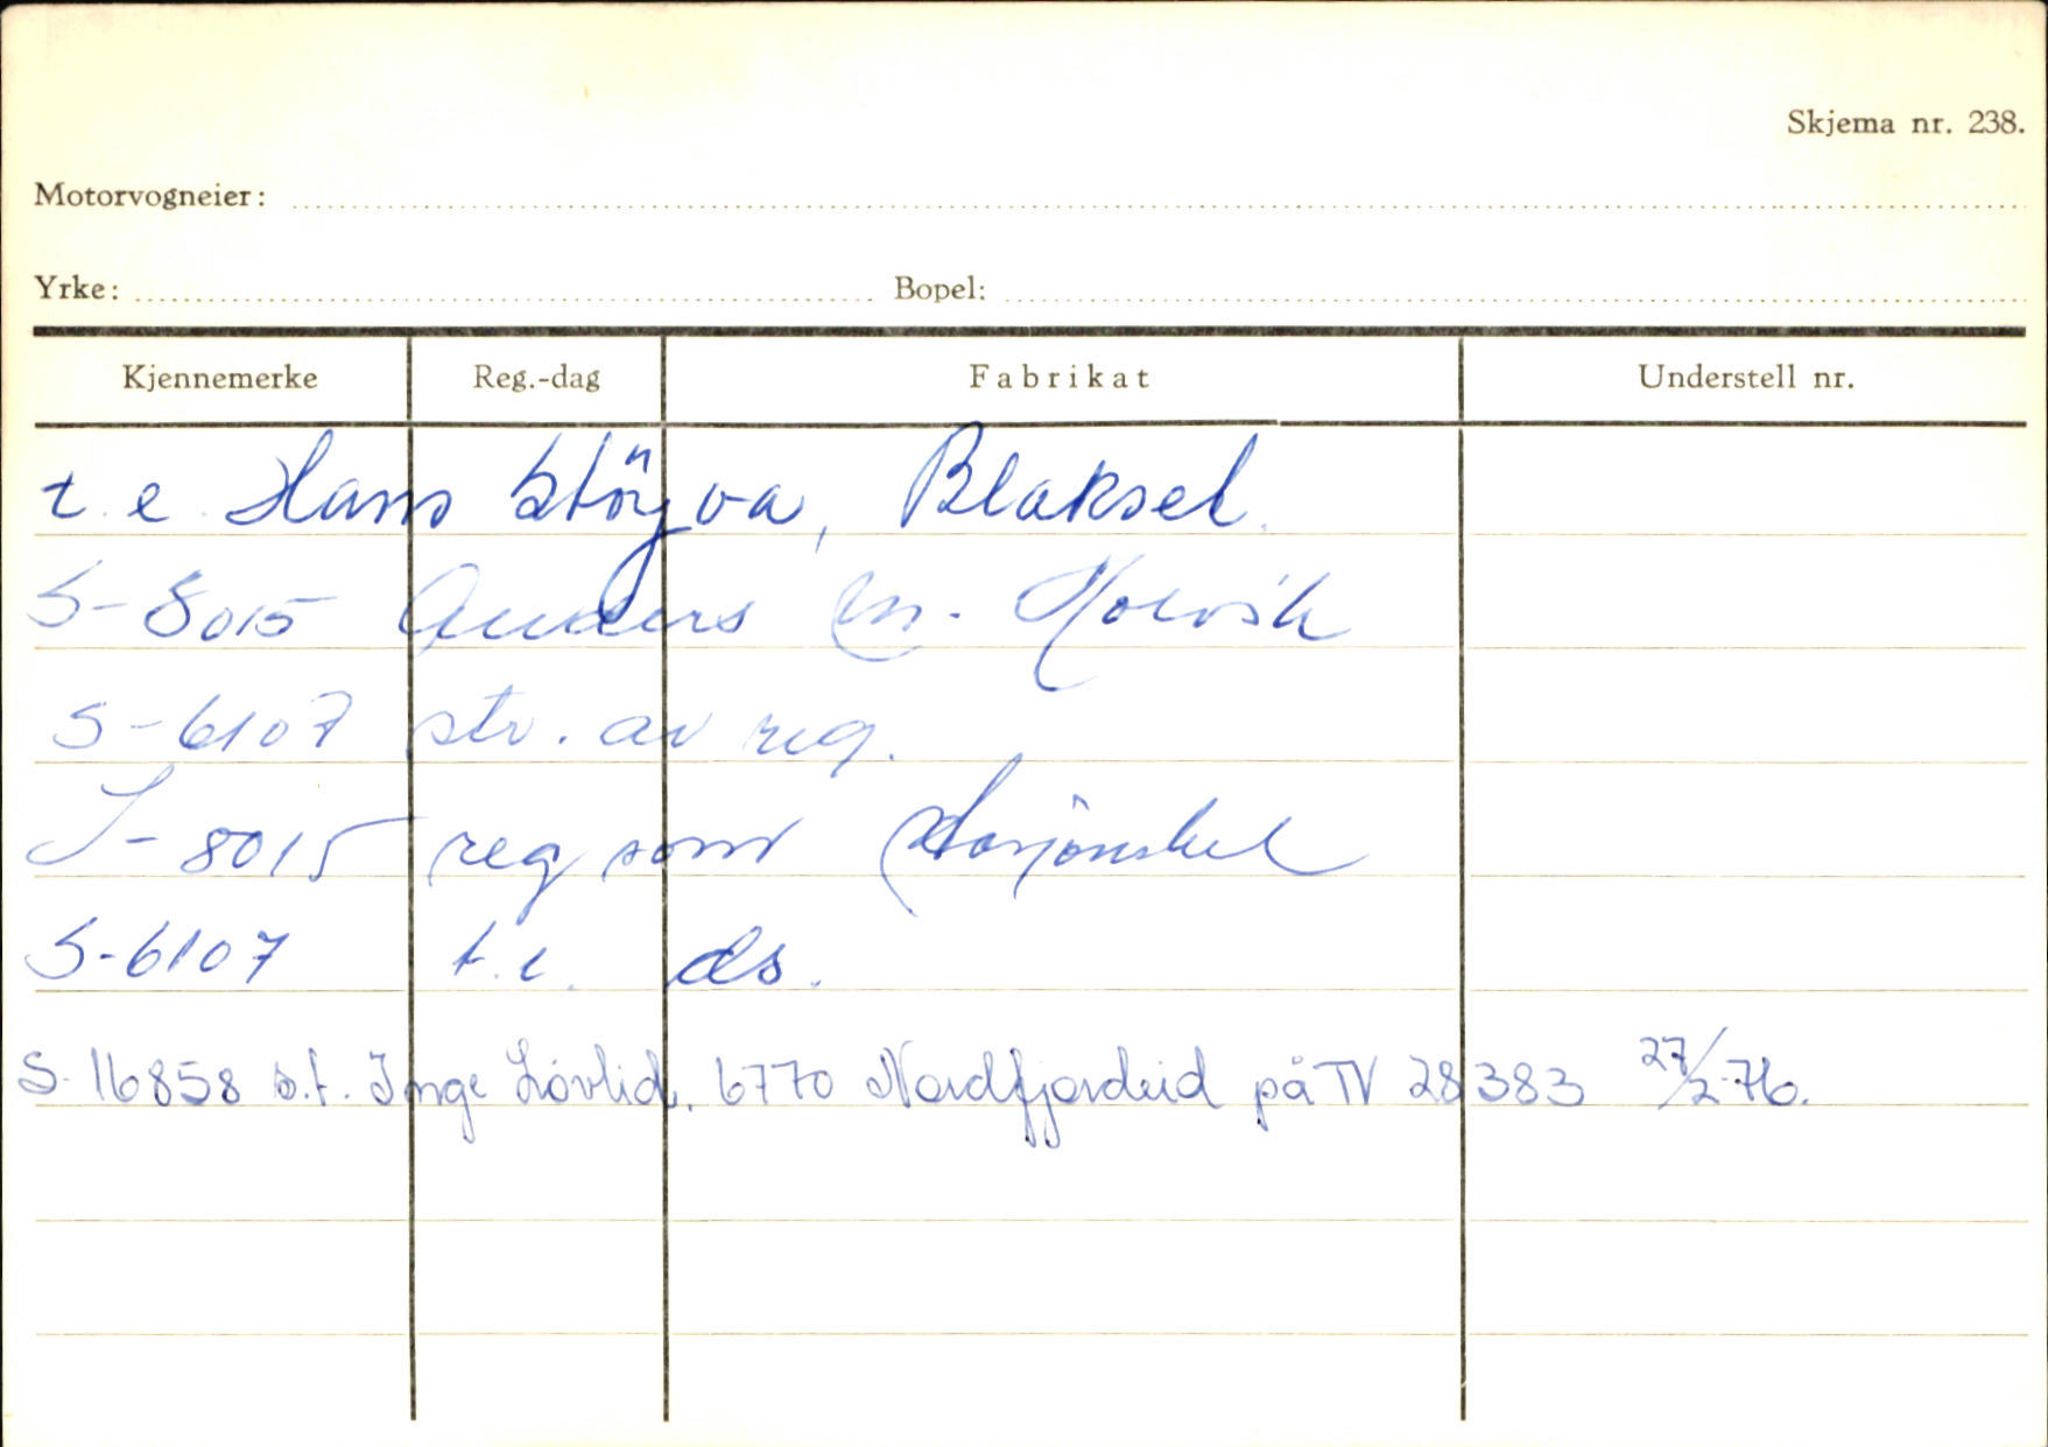 Skjema nr. 238.
Motorvogneier:
Yrke: Bopel:
Kjennemerke Reg.-dag Fabrikat Understell nr.
t.e. Hans Støyva, Blaksel.
S-8015 Anders M.
S-6107 str. av reg.
S-8015 reg som
S-6107 t.e. ds.
S-16858 s.t. Inge Løvlid, 6770 Nordfjordeid på TV 28383 27/2-76.